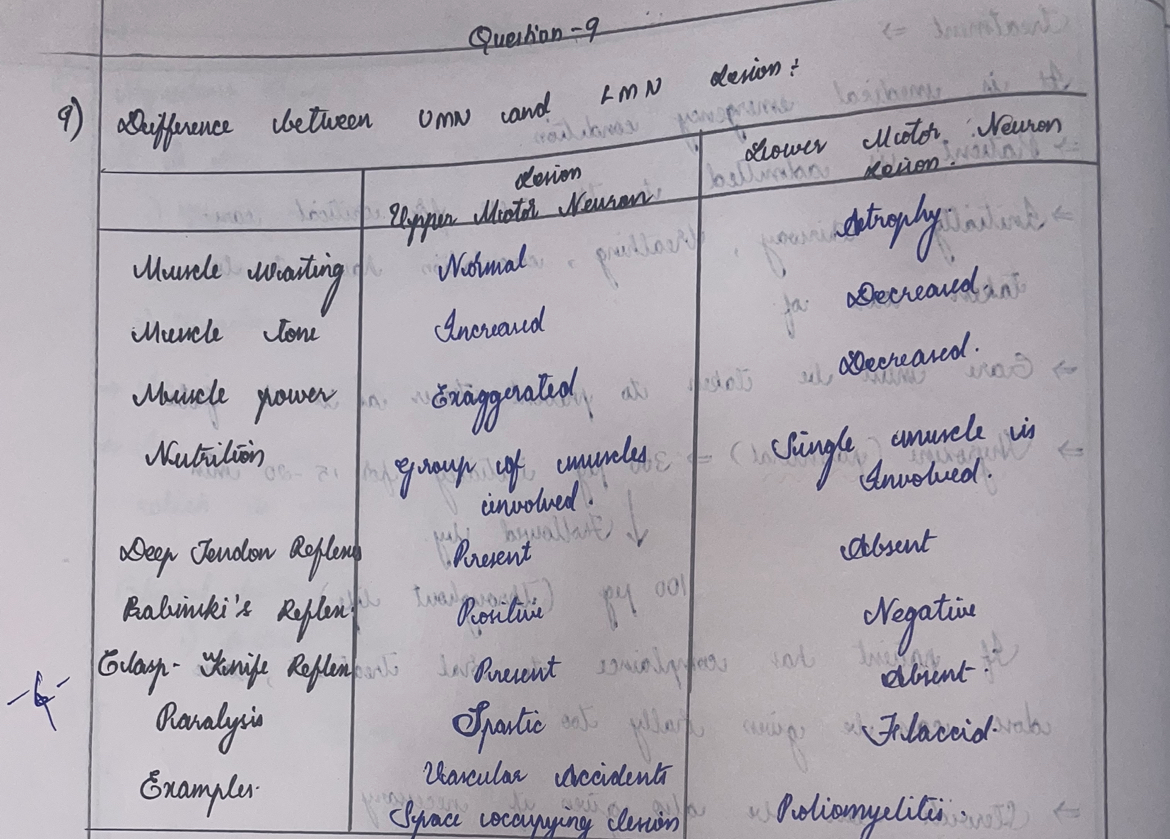 Question-9
9) Difference between UMN and LMN Lesion:
Lesion
Upper Motor Neuron
Lower Motor Neuron
Lesion.
Muscle wasting Normal Atrophy.
Muscle tone Increased Decreased.
Muscle power Exaggerated Decreased.
Nutrition Group of muscles involved. Single muscle is Involved.
Deep Tendon Reflex Present Absent
Babinski's Reflex Positive Negative
Clasp-Knife Reflex Present Absent.
Paralysis Spastic Flaccid.
Examples. Vascular Accidents
Space occupying lesion Poliomyelitis.